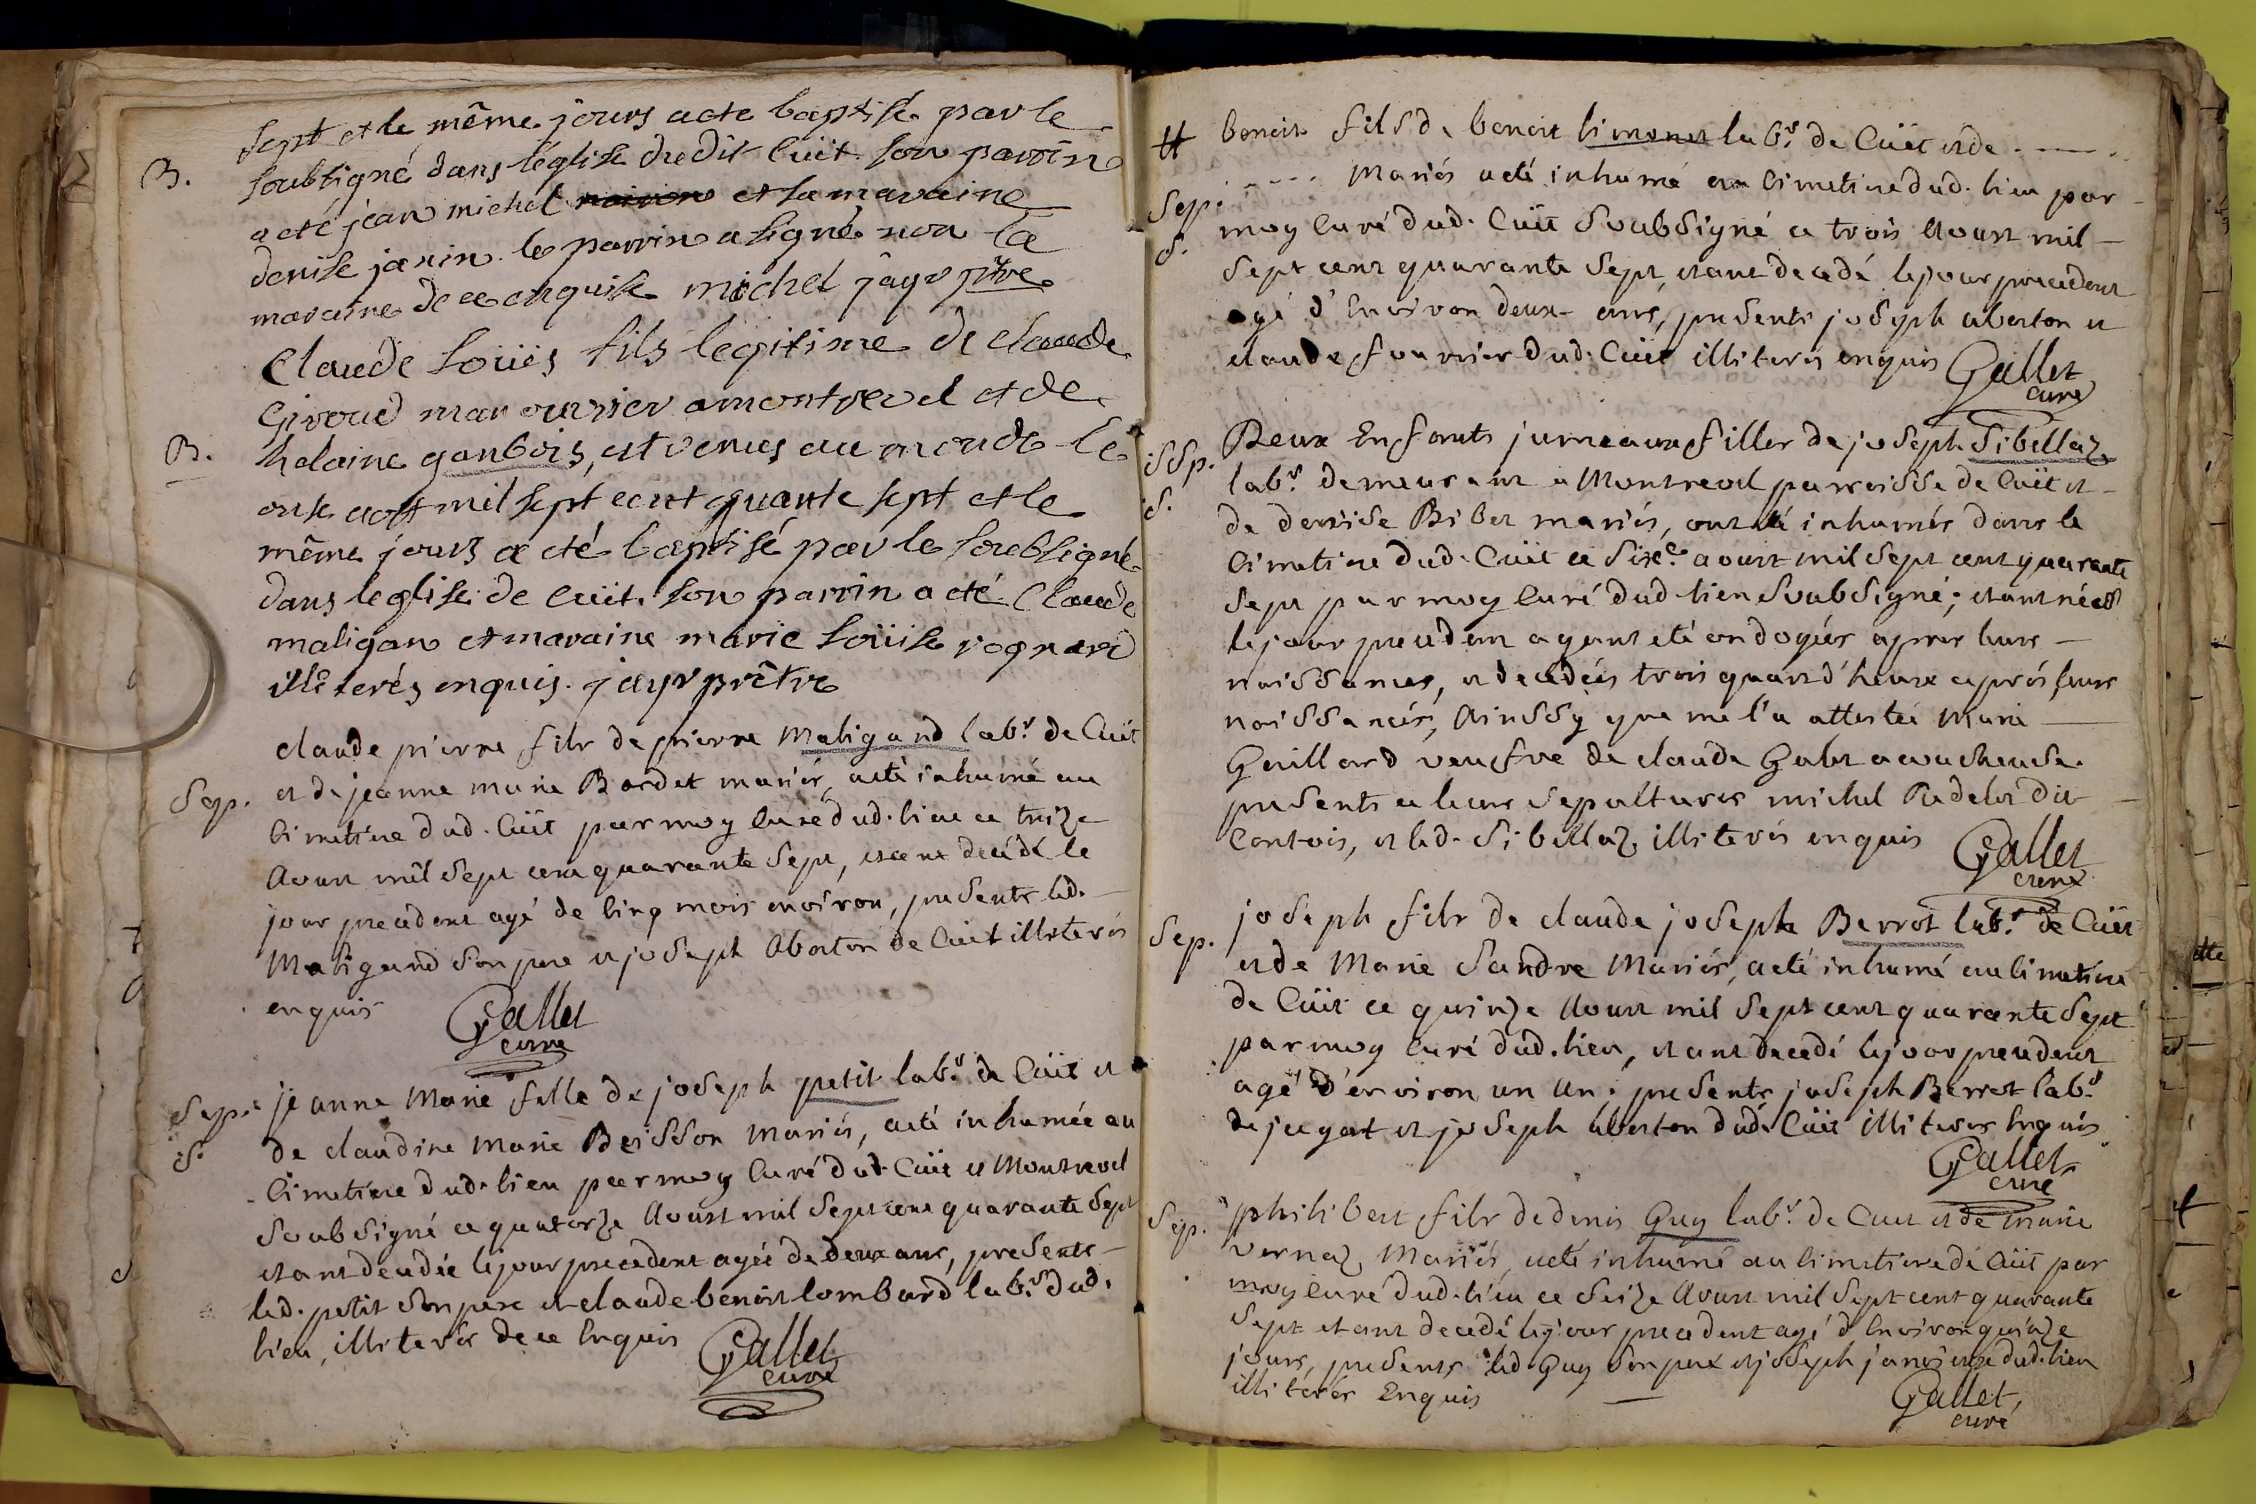 B.
sept et le même jours a cte baptisé par le
soubsigné dans l'église dudit Cuit son parrin
a cté jean michel et la maraine
denise janin le parrin a signé non la
maraine de ce enquise michel jayr ptre
B.
Claude Loüis fils legitime de claude
Giroud manouvrier a montreval et de
helaine ganbois, est venus au monde le
onse aost mil sept cent quarante sept et le
même jours a cté baptisé par le soubsigné
dans leglise de cüit. son parrin a cté Claude
maligan et maraine marie Loüise rognard
illiterés enquis. jayr prêtre
Sep.
claude pierre fils de pierre Maligand labr. de Cüit
et de jeanne marie Bordet mariés, a eté inhumé au
Cimetiere dud. Cüit par moy Curé dud. lieu ce treize
Aoust mil sept cent quarante Sept, etant decédé le
jour precedent agé de Cinq mois environ, presents led.
Maligand son pere et joseph Aberton de Cuit illiterés
enquis
Gallet
curé
Sep.
S.
jeanne Marie fille de joseph petit labr. de Cüit et
de claudine Marie Beisson Mariés, a eté inhumée au
Cimetiere dud. lieu par moy Curé dud. Cüit et Montreval
Soubsigné ce quatorze Aoust mil Sept cent quarante Sept
etant decedée le jour precedent agée de deux ans, presents
led. petit son pere et claude benoist lombard labr. dud.
lieu, illiterés de ce Enquis
Gallet
curé
Sep.
S.
benoit fils de benoit limonet labr. de Cüit et de
Mariés a eté inhumé au Cimetiere dud. lieu par
moy Curé dud. Cüit Soubsigné ce trois Aoust mil
Sept cent quarante Sept, etant decedé le jour precedent
agé d'Environ deux ans, presents joseph aberton et
claude fournier dud. Cüit illiterés enquis
Gallet
curé
Sep.
S.
Deux Enfants jumeaux filles de joseph Sibellaz
labr. demeurant a Montreval parroisse de Cüit et
de denise Bibet mariés, ont eté inhumés dans le
Cimetiere dud. Cüit ce Sixe. aoust mil Sept cent quarante
Sept par moy Curé dud. lieu Soubsigné; etant nées
le jour precedent ayant eté ondoyées apres leurs
naissances, et decedées trois quart d'heure aprés leurs
naissances, Ainssy que me l'a attestée Marie
Guillard veufve de claude Gabet acoucheuse.
presents a leurs Sepultures michel Radelet dit
Contois, et led. Sibellaz illiterés enquis
Gallet
curé
Sep.
joseph fils de claude joseph Berrot labr. de Cüit
et de Marie Sandre Mariés, a eté inhumé au Cimetiere
de Cüit ce quinze Aoust mil Sept cent quarante Sept
par moy Curé dud. lieu, etant decedé le jour precedent
agé d'environ un An; presents joseph Berrot labr.
de jayat et joseph aberton dud. Cüit illiterés Enquis
Gallet
curé
Sep.
philibert fils de denis Guy labr. de Cuit et de Marie
vernaz Mariés, a eté inhumé au Cimetiere de Cüit par
moy Curé dud. lieu ce Seize Aoust mil Sept cent quarante
Sept etant decedé le jour precedent agé d'Environ quinze
jours, presents led. Guy son pere et joseph dud. lieu
illiterés Enquis
Gallet,
curé